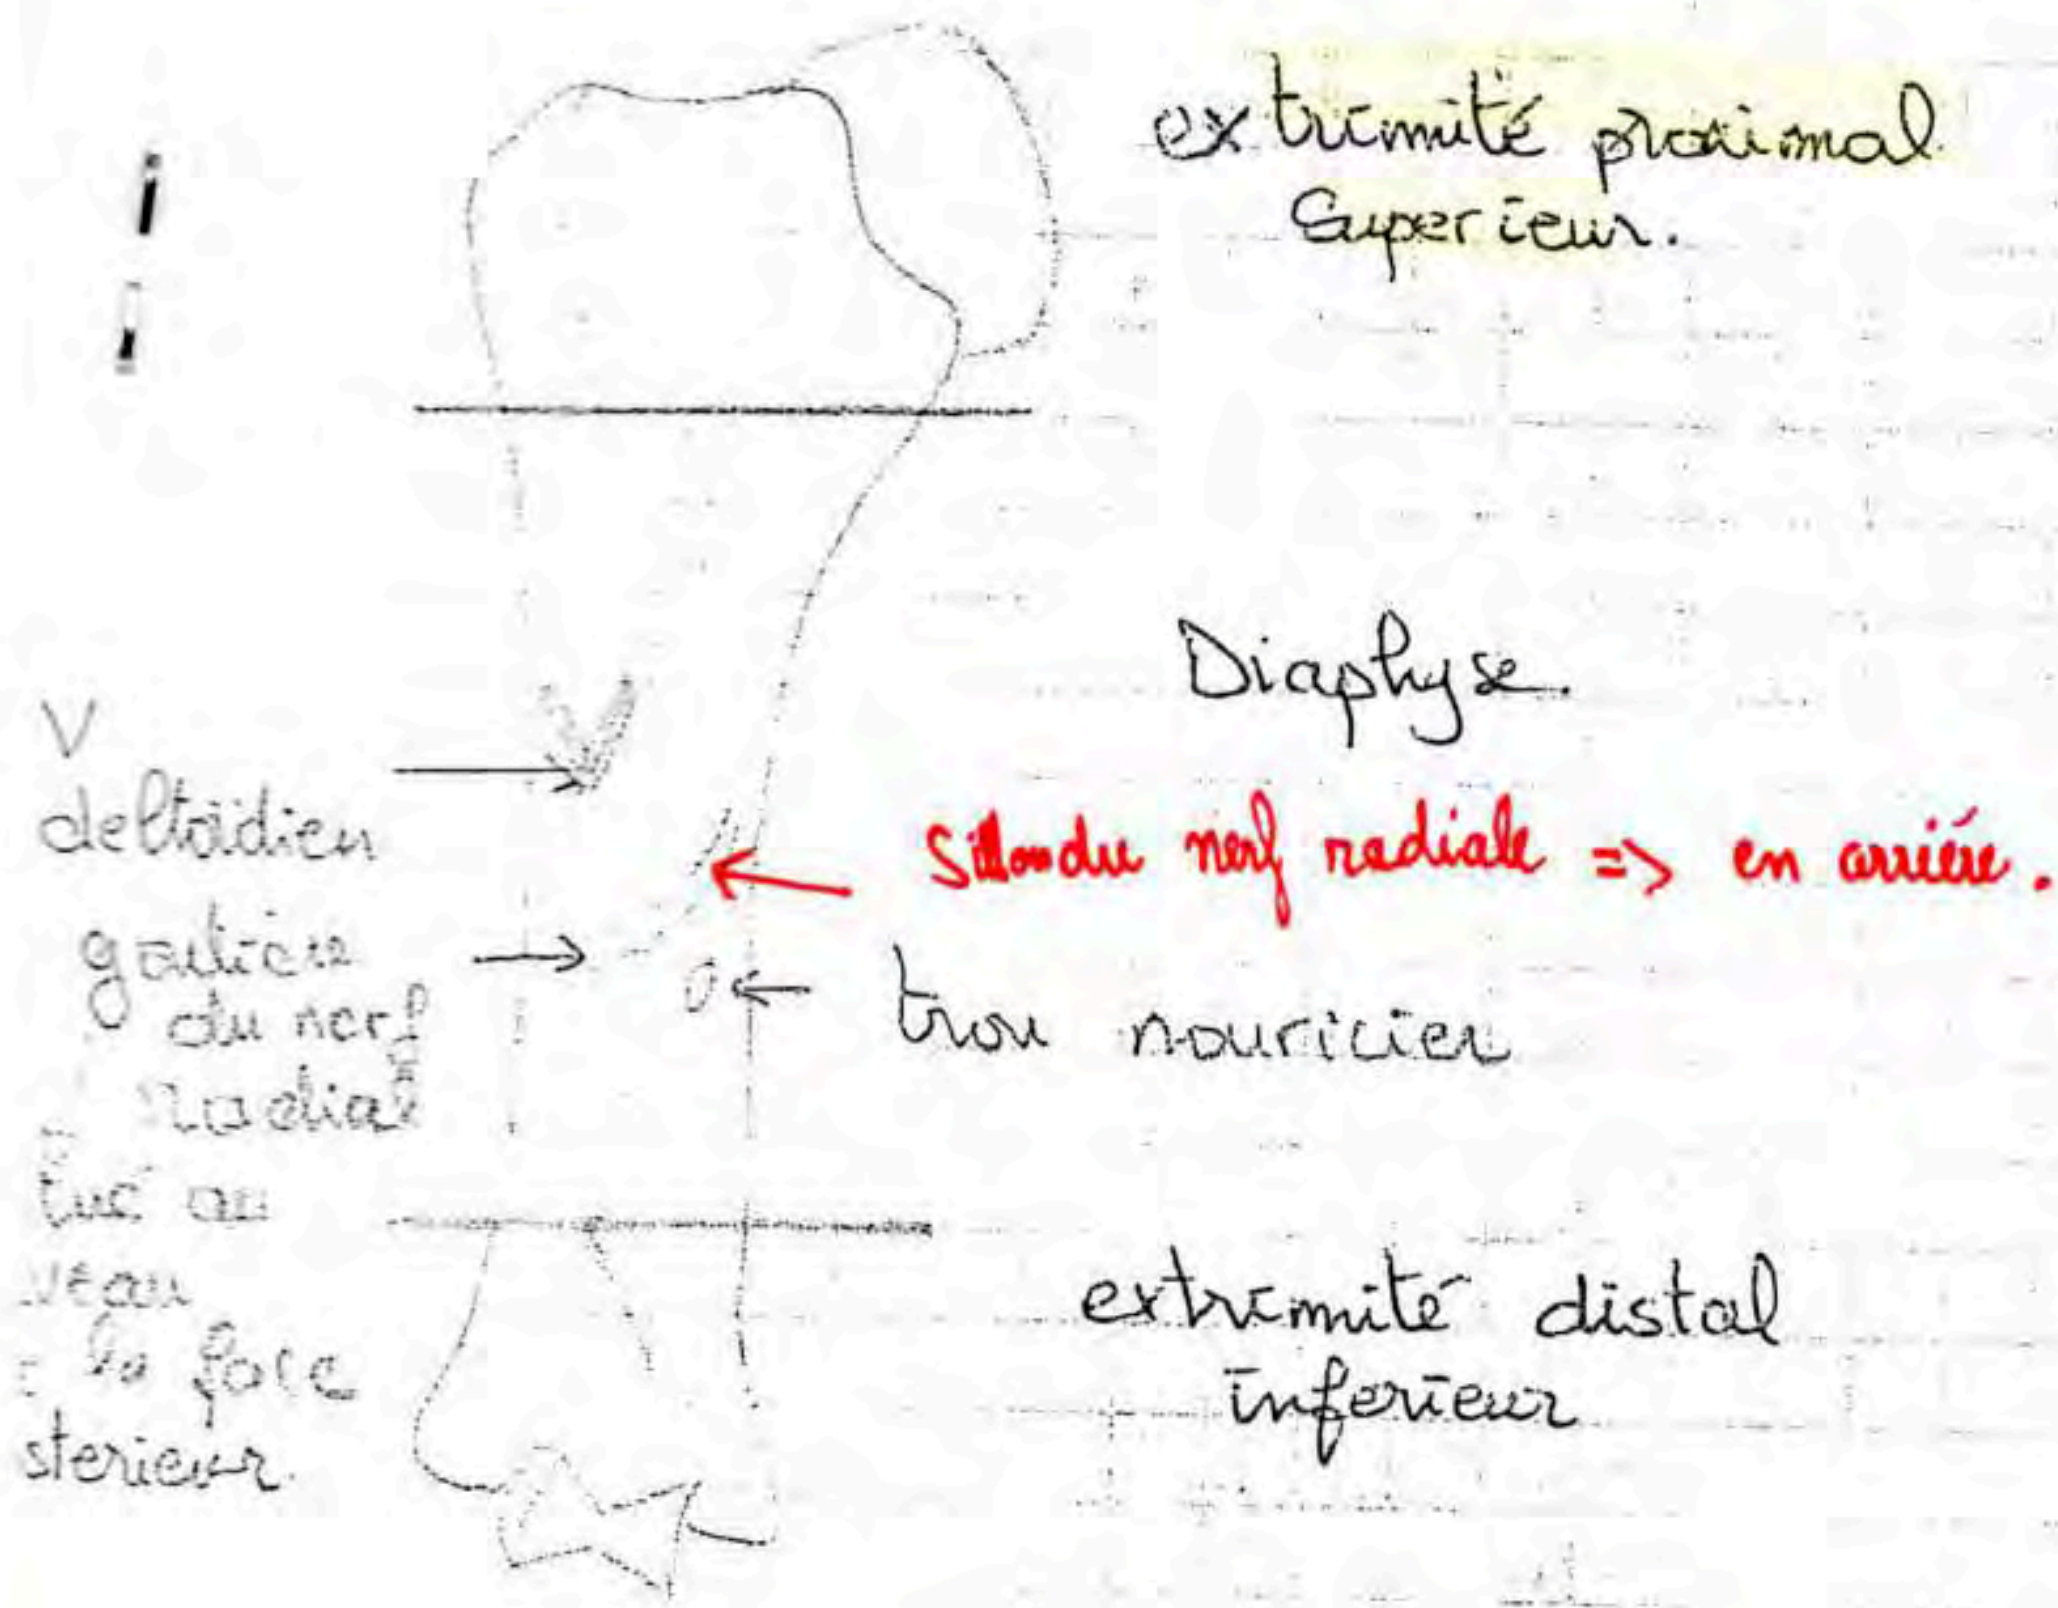 extrimité proximal
Superieur.
Diaphyse.
V
deltoïdien
Sillon du nerf radiale => en arriére.
goutiere
du nerf
radial
trou nouricier
tué au
veau
la face
sterieur.
extrimité distal
inferieur